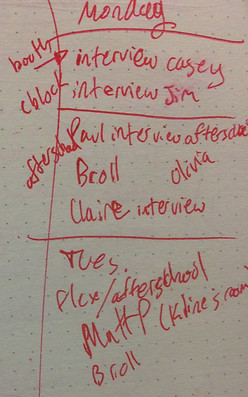 Monday
booth interview casey
cblock interview Jim
afterschool Paul interview afterschool
Broll Olivia
Claire interview
Tues.
flex/afterschool
Matt P
Broll